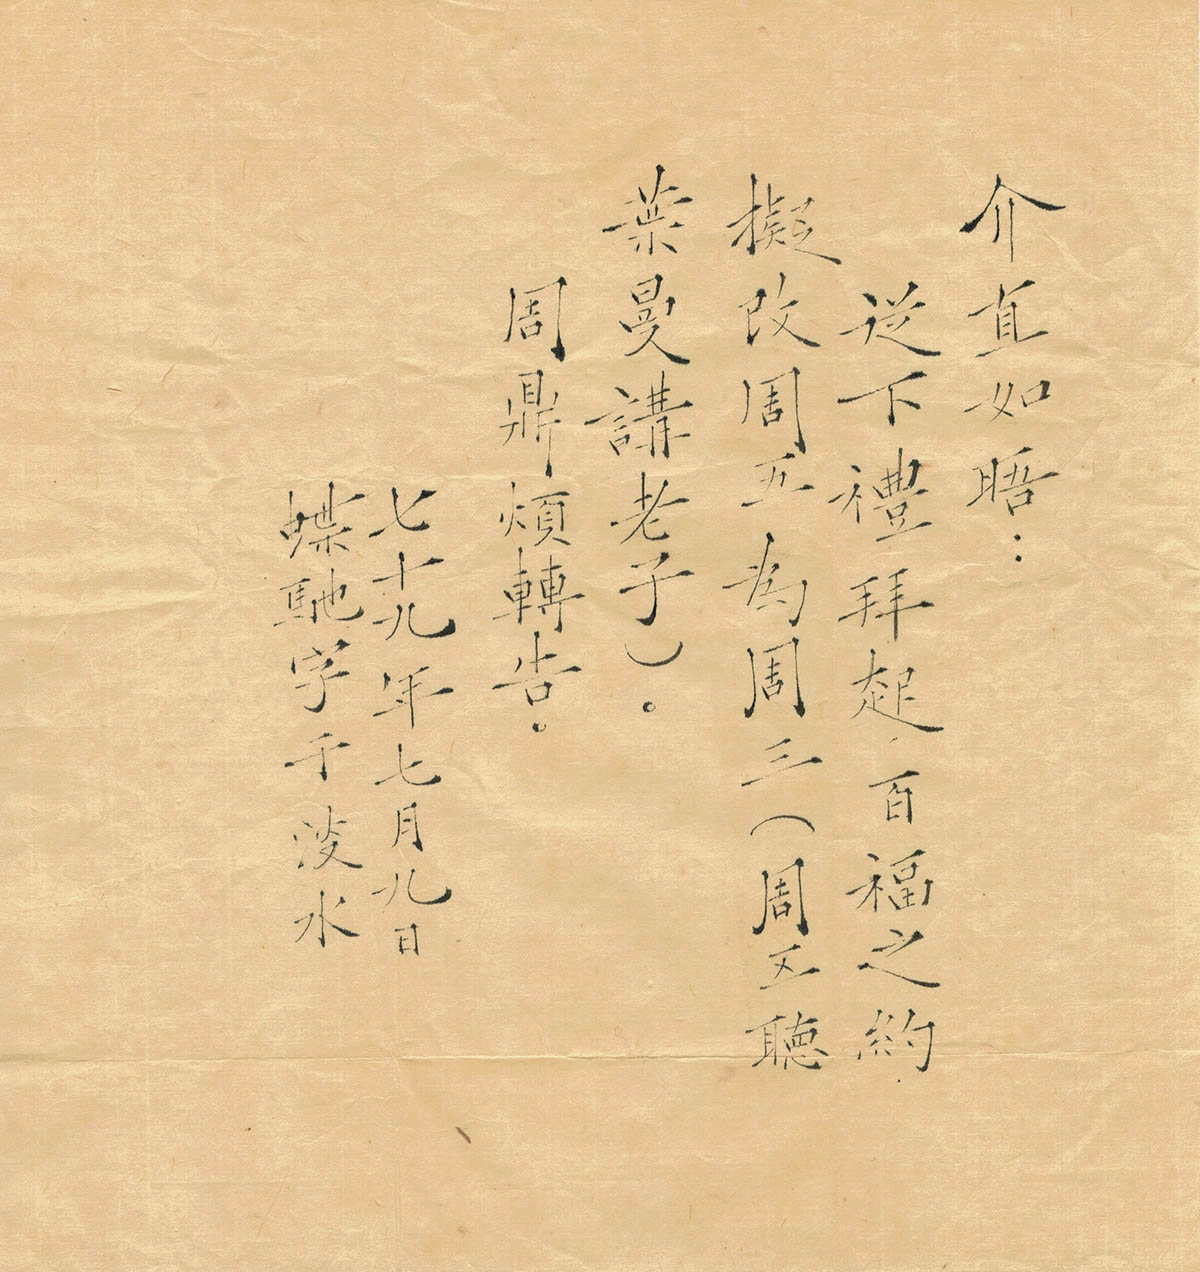 介直如晤：
從下禮拜起，百福之約，
擬改周五為周三（周五聽
葉曼講老子）。
周鼎煩轉告。
七十九年七月九日
蝶馳字于淡水